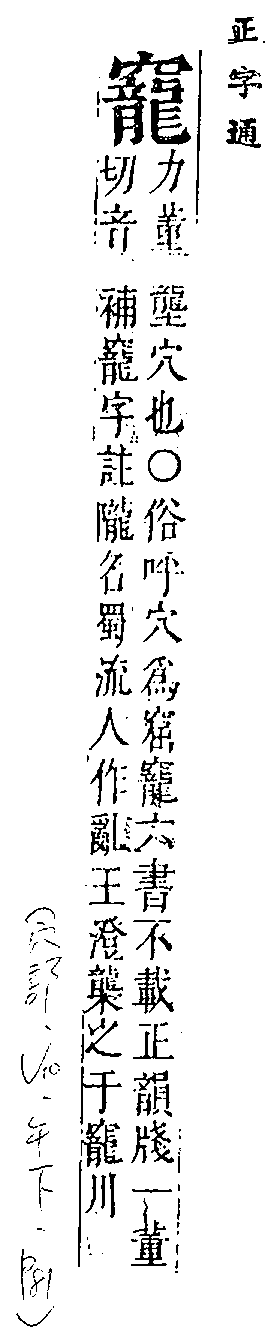 正字通
竉
力董
切音
壟穴也○俗呼穴爲窟竉六書不載正韻牋一董
補竉字註隴名蜀流人作亂王澄襲之于竉川
(穴部、V10、午下、P81)